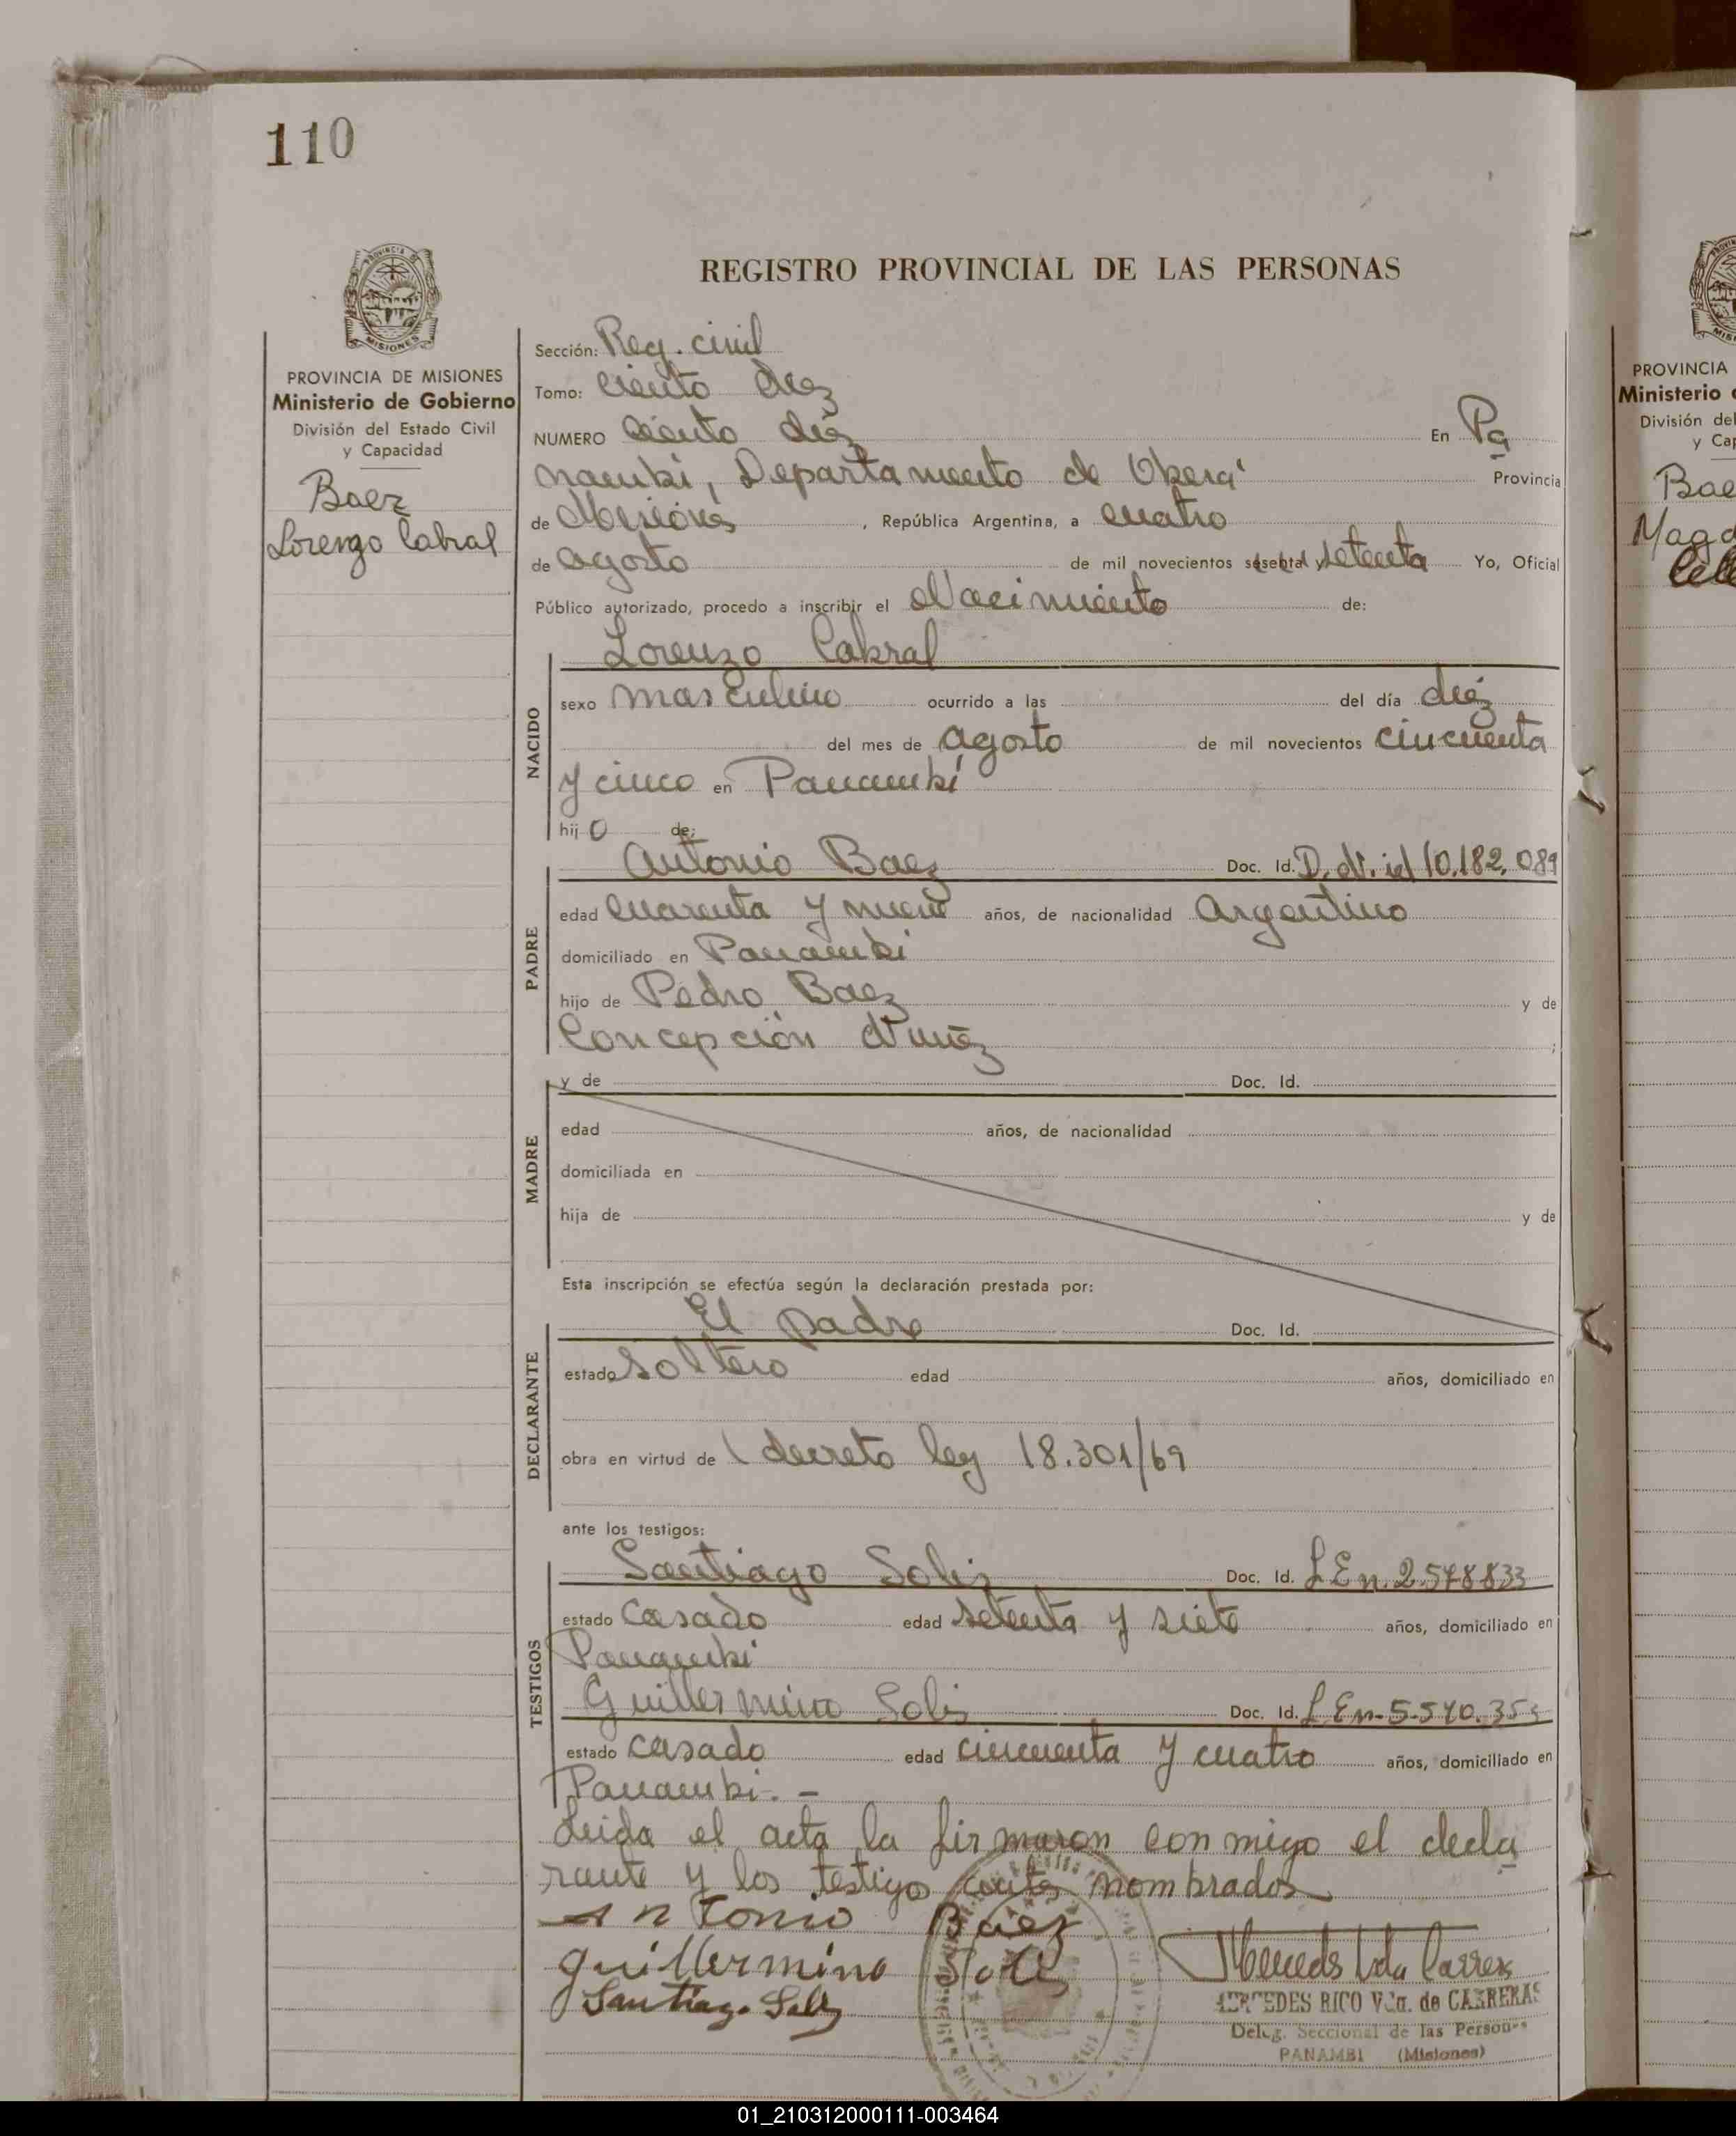 110
PROVINCIA
MISIONES
PROVINCIA DE MISIONES
Ministerio de Gobierno
División del Estado Civil
y Capacidad
Baez
Lorenzo Cabral
REGISTRO PROVINCIAL DE LAS PERSONAS
Sección: Reg. civil
Tomo: ciento diez
NUMERO Ciento diez En Pa
nambi, Departamento de Oberá Provincia
de Misiones, República Argentina, a cuatro
de agosto de mil novecientos sesenta y setenta Yo, Oficial
Público autorizado, procedo a inscribir el Nacimiento de:
Lorenzo Cabral
NACIDO
sexo masculino ocurrido a las del día diez
del mes de agosto de mil novecientos cincuenta
y cinco en Panambi
hijo de:
PADRE
Antonio Baez Doc. Id. D.N.id 10.182.089
edad cuarenta y nueve años, de nacionalidad Argentino
domiciliado en Panambi
hijo de Pedro Baez y de
Concepción Nuñez;
MADRE
y de Doc. Id.
edad años, de nacionalidad
domiciliada en
hija de y de
Esta inscripción se efectúa según la declaración prestada por:
DECLARANTE
El padre Doc. Id.
estado soltero edad años, domiciliado en
obra en virtud de (decreto ley 18.301/69
ante los testigos:
TESTIGOS
Santiago Solis Doc. Id. L.E.n. 2.548833
estado casado edad setenta y siete años, domiciliado en
Panambi
Guillermino Solis Doc. Id. L.E.n. 5.540.353
estado casado edad cincuenta y cuatro años, domiciliado en
Panambi. -
Leida el acta la firmaron conmigo el decla
rante y los testigo antes nombrados
Antonio Baez
guillermino Solis
Santiago Solis
MERCEDES RICO Vda. de CARRERAS
Deleg. Seccional de las Personas
PANAMBI (Misiones)
PROVINCIA
Ministerio
División del
y Cap
Bae
Magd
01_210312000111-003464